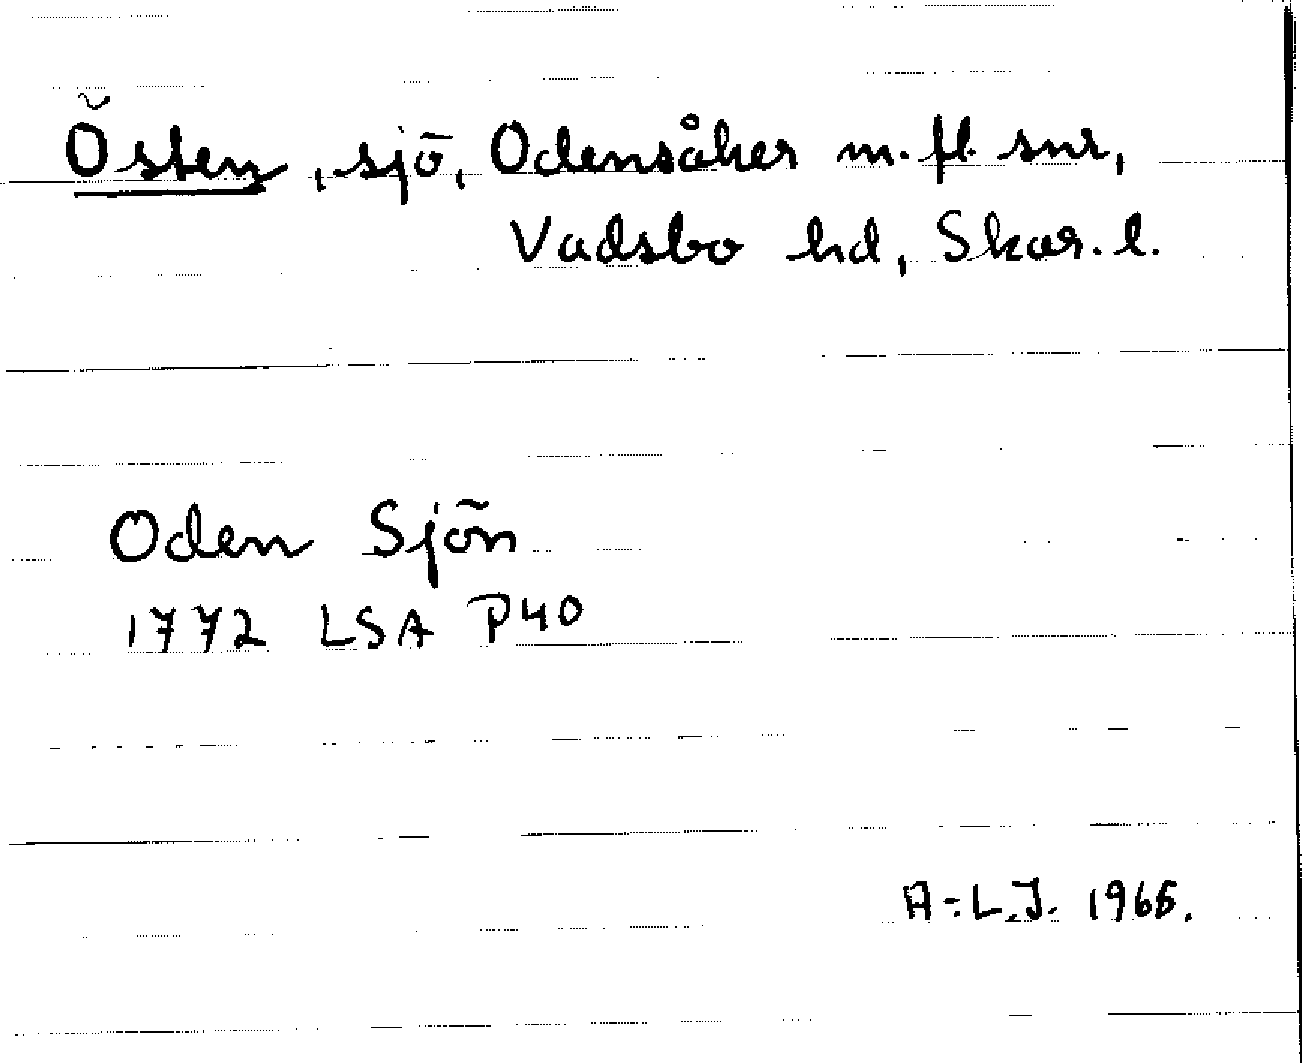 Östen, sjö, Odensåker m.fl. snr,
Vadsbo hd, Skar. l.
Oden Sjön
1772 LSA P40
A-L.J. 1965.